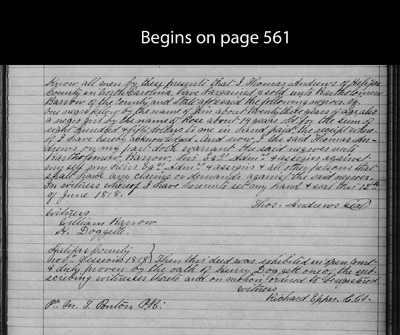 Begins on page 561
Know all men by these presents that I Thomas Andrews of Halifax
County in North Carolina have bargained & sold unto Bartholomew
Barrow of the County and State aforesaid the following negroes Viz
one negro fellow by the name of Jim about twenty three years of age also
a negro girl by the name of Rose about 14 years old for the sum of
eight hundred & fifty dollars to me in hand paid, the receipt where
of I have hereby acknowledged. And now I the said Thomas An-
drews on my part doth warrant the said negroes unto
Bartholomew Barrow his Exrs Admrs & assigns against
my self my heirs Exrs Admrs & assigns & all other persons that
shall have any claims or demands against the said negroes.
In witness whereof I have hereunto set my hand & seal this 18th
of June 1818.
Thos. Andrews seal
Witness
William Barrow
H. Doggett
Halifax County
Novr Sessions 1818 } Then this deed was exhibited in open Court
& duly proven by the oath of Henry Doggett one of the sub
scribing witnesses thereto and on motion ordered to be registered.
Witness
Richard Eppes C.Ct.
Pr. M. T. Ponton P.R.